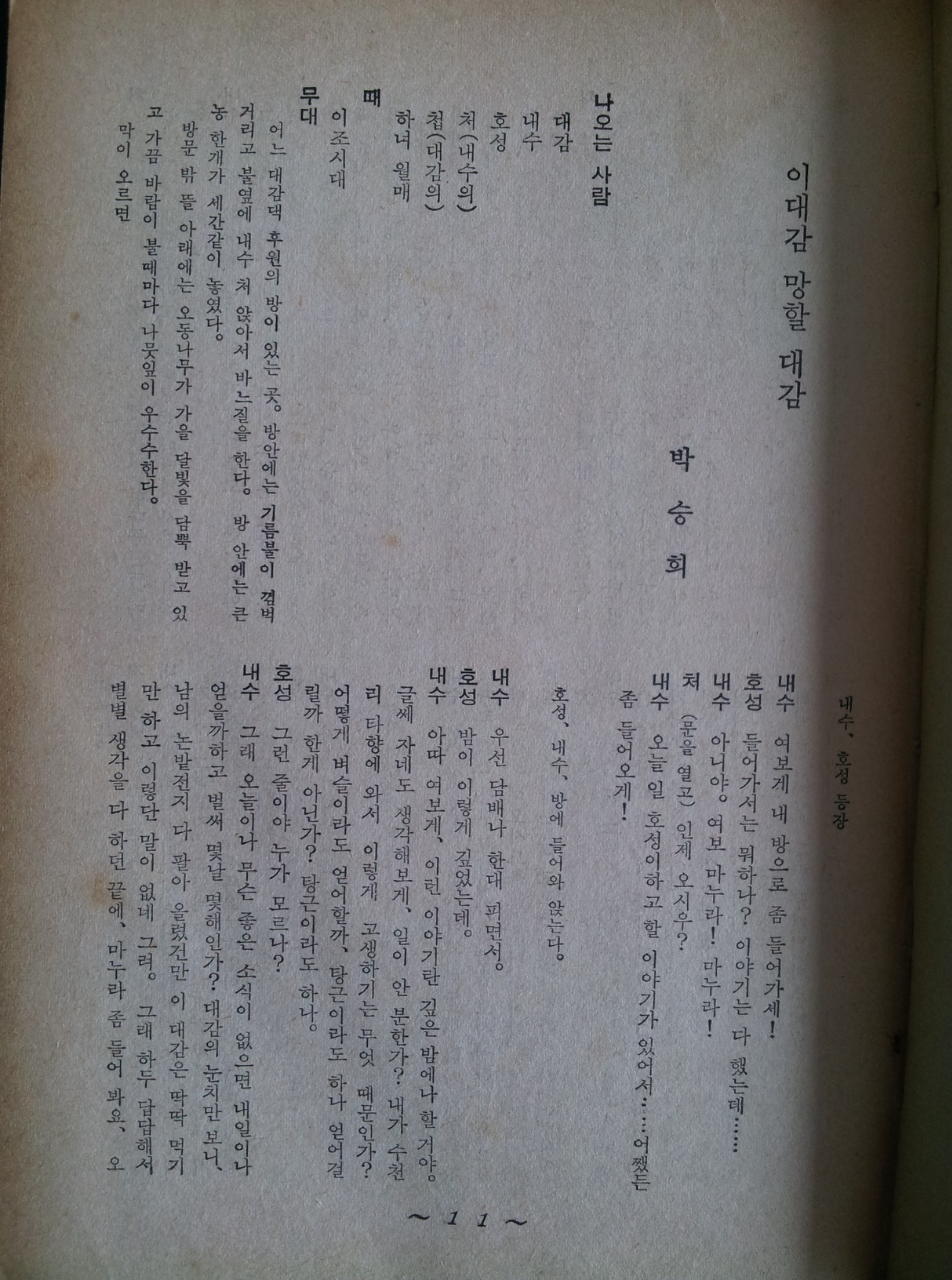 이대감 망할 대감
박 승 희
나오는 사람
대감
내수
호성
처(내수의)
첩(대감의)
하녀 월매
때
이조시대
무대
어느 대감댁 후원의 방이 있는 곳。 방안에는 기름불이 껌벅
거리고 불옆에 내수 처 앉아서 바느질을 한다。 방 안에는 큰
농 한개가 세간같이 놓였다。
방문 밖 뜰 아래에는 오동나무가 가을 달빛을 담뿍 받고 있
고 가끔 바람이 불때마다 나뭇잎이 우수수한다。
막이 오르면
내수、 호성 등장
내수 여보게 내 방으로 좀 들어가세!
호성 들어가서는 뭐하나? 이야기는 다 했는데……
내수 아니야。 여보 마누라! 마누라!
처 (문을 열고) 인제 오시우?
내수 오늘 일 호성이하고 할 이야기가 있어서……어쨌든
좀 들어오게!
호성、 내수、 방에 들어와 앉는다。
내수 우선 담배나 한대 피면서。
호성 밤이 이렇게 깊었는데。
내수 아따 여보게、 이런 이야기란 깊은 밤에나 할 거야。
글쎄 자네도 생각해보게、 일이 안 분한가? 내가 수천
리 타향에 와서 이렇게 고생하기는 무엇 때문인가?
어떻게 벼슬이라도 얻어할까、 탕근이라도 하나 얻어걸
릴까 한게 아닌가? 탕근이라도 하나。
호성 그런 줄이야 누가 모르나?
내수 그래 오늘이나 무슨 좋은 소식이 없으면 내일이나
얻을까하고 벌써 몇날 몇해인가? 대감의 눈치만 보니、
남의 논밭전지 다 팔아 올렸건만 이 대감은 딱딱 먹기
만 하고 이렇단 말이 없네 그려。 그래 하두 답답해서
별별 생각을 다 하던 끝에、 마누라 좀 들어 봐요、 오
～ 1 1 ～